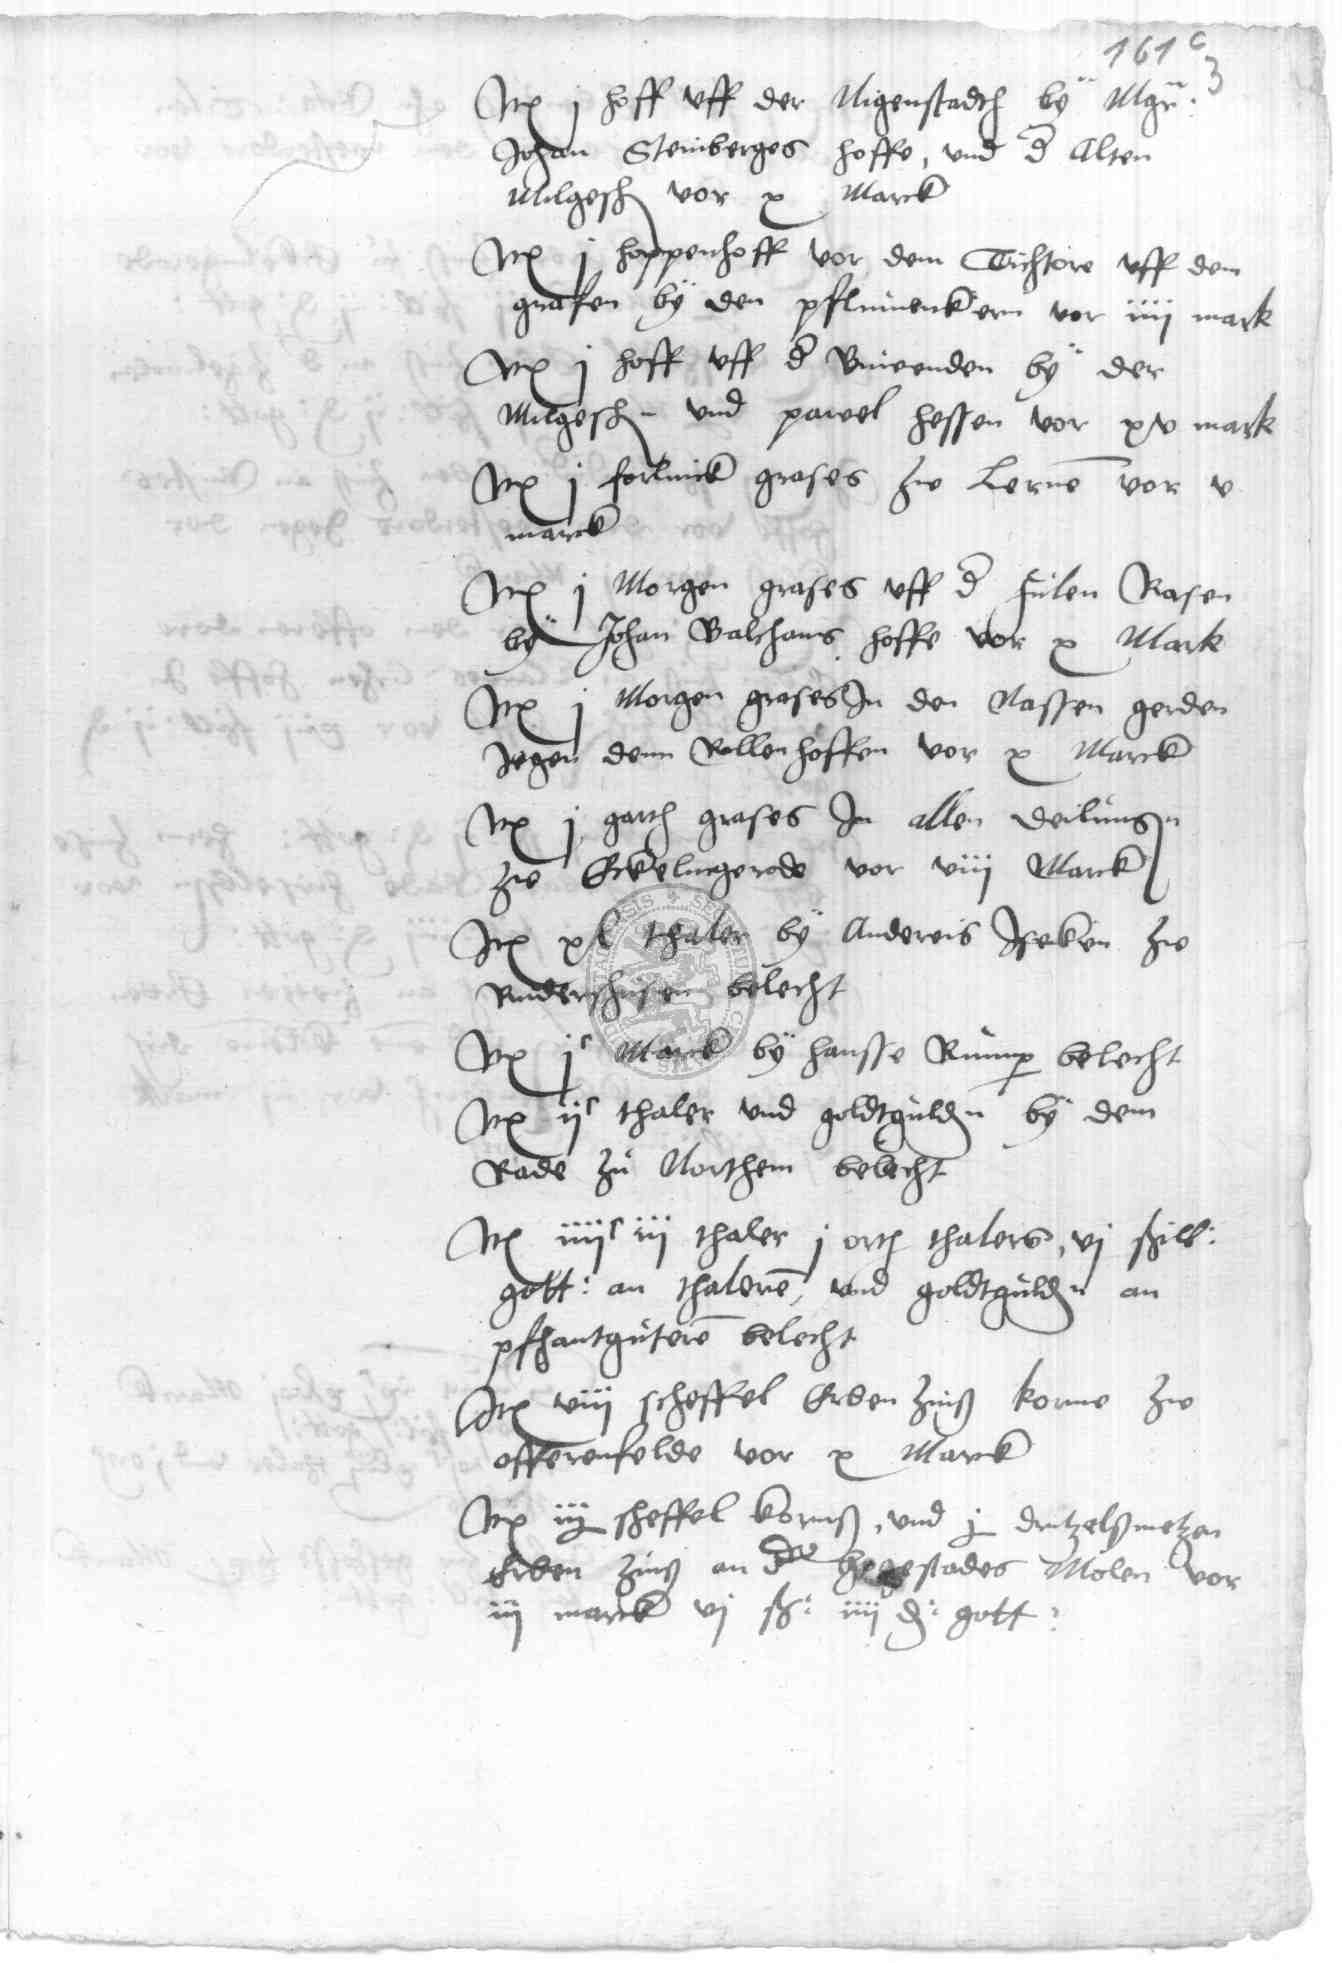 161 c
3
Itē j hoff vff der Nigenstadth bÿ Mgr̄:
Johan Steinberges hoffe, vnd d̄ Alten
Milgesch vor x Marck
Itē j hoppenhoff vor dem Tichtore vff dem
grafen bÿ den pflumenkern vor iiij mark
Itē j hoff vff d̄ bÿ der
Milgeschn vnd pawel hessen vor xv mark
Itē j forlinck grases zw Lernē vor v
marck
Itē j Morgen grases vff d̄ fulen Rasen
bÿ Johan Balthaus hoffe vor x Mark
Itē j Morgen grases In den Nassen gerden
Jegen dem Rollenhoffen vor x Marck
Itē j garth grases In allen deilungn
zw Eckelingerode vor viij Marck
Itē xl thaler bÿ Andereis Iseken zw
Rudershusen belecht
Itē jᶜ Marck bÿ hansse Rump belecht
Itē ijᶜ thaler vnd goldtguldn bÿ dem
Rade zu Northem belecht
Itē iiijᶜ iij thaler j orth thalers, vj ßill:
gott: an thalerē, vnd goldtguldn an
pfhantguterē belecht
Itē viij scheffel Erben zinß korne zw
offerenfelde vor x Marck
Itē iij scheffel kornß, vnd j drutzelßmetzen
Erben zinß an der Molen vor
iij marck vj ß: iiij d: gott: